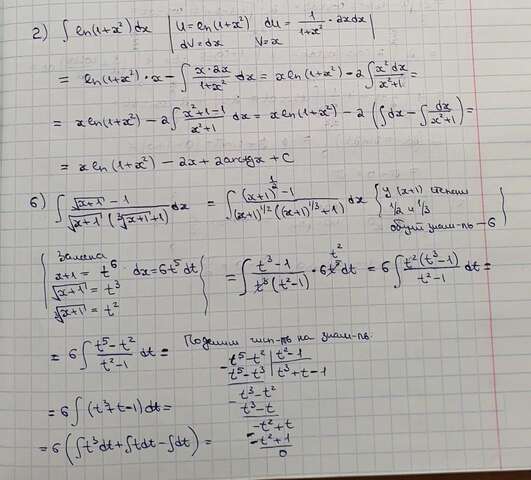 2) ∫ ln(1+x²)dx | U = ln(1+x²) dU = 1/(1+x²) · 2xdx |
dV = dx V = x
= ln(1+x²) · x − ∫ (x·2x)/(1+x²) dx = x ln(1+x²) − 2∫ (x²dx)/(x²+1) =
= x ln(1+x²) − 2∫ (x²+1−1)/(x²+1) dx = x ln(1+x²) − 2 (∫dx − ∫ dx/(x²+1)) =
= x ln(1+x²) − 2x + 2arctgx + C
6) ∫ (√(x+1) − 1)/(√(x+1) (∛(x+1) + 1)) dx = ∫ ((x+1)^(1/2) − 1)/((x+1)^(1/2) ((x+1)^(1/3) + 1)) dx { у (x+1) степени
1/2 и 1/3
общий знам-ль − 6 }
{ Замена
x+1 = t⁶ dx = 6t⁵dt
√(x+1) = t³
∛(x+1) = t² }
= ∫ (t³−1)/(t³(t²−1)) · 6t⁵dt t² = 6 ∫ (t²(t³−1))/(t²−1) dt =
= 6 ∫ (t⁵−t²)/(t²−1) dt = Поделим числ-ль на знам-ль.
−t⁵−t² | t²−1
t⁵−t³ | t³+t−1
−t³−t²
t³−t
−t²+t
−−t²+1
0
= 6 ∫ (t³+t−1)dt =
= 6 (∫t³dt + ∫tdt − ∫dt) =